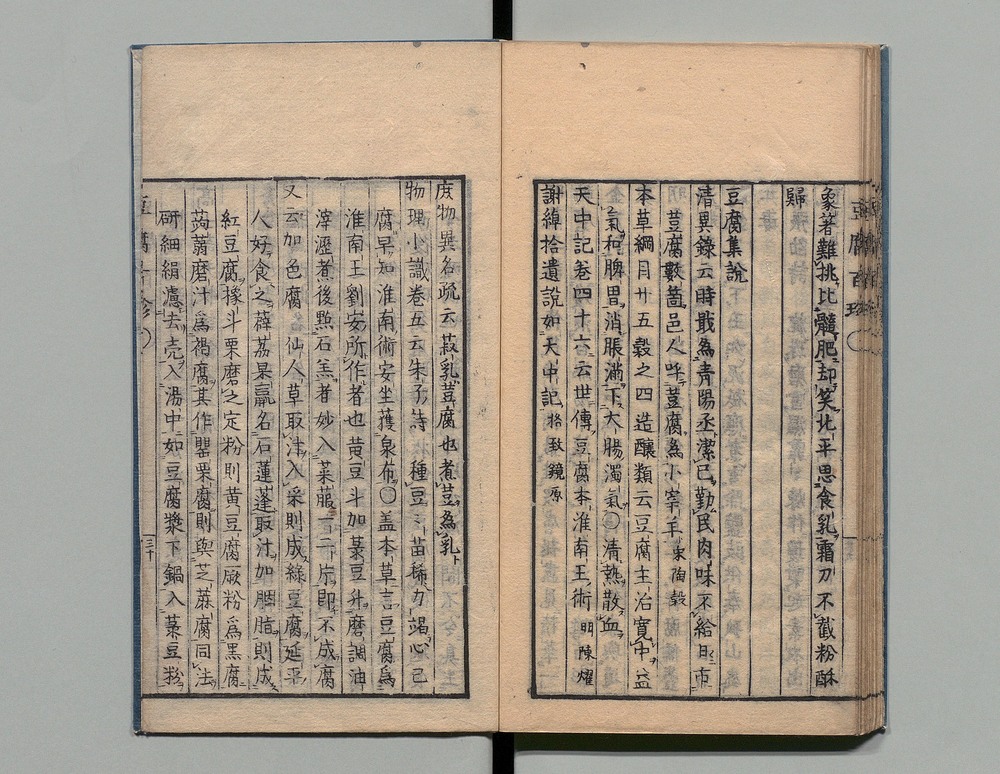 象著難挑比髓肥却笑北平思食乳霜刀不截粉酥
歸
豆腐集說
清異錄云時戢為青陽丞潔己勤民肉味不給日市
荳腐數箇邑人呼荳腐為小宰羊 宋陶穀
本草綱目廿五穀之四造釀類云豆腐主治寬中益
氣和脾胃消脹滿下大腸濁氣〇清熱散血
天中記卷四十六云世傳豆腐本淮南王術 明陳耀
謝綽拾遺說如天中記 格致鏡原
庻物異名疏云菽乳荳腐也煮荳為乳
物理小識卷五云朱子詩種豆〻苗稀力竭心已
腐早知淮南術安坐獲泉布〇盖本草言豆腐為
淮南王劉安所作者也黃豆斗加菉豆升磨調油
滓瀝煮後㸃石羔者妙入菜菔一二片即不成腐
又云加色腐仙人草取汁入采則成綠豆腐延平
人好食之薜荔果贏名石蓮蓬取汁加胭脂則成
紅豆腐橡斗栗磨之定粉則黃豆腐蕨粉爲黑腐
蒟蒻磨汁爲褐腐其作罌栗腐則與芝蔴腐同法
研細絹濾去壳入湯中如豆腐漿下鍋入菉豆粉
豆腐百珍